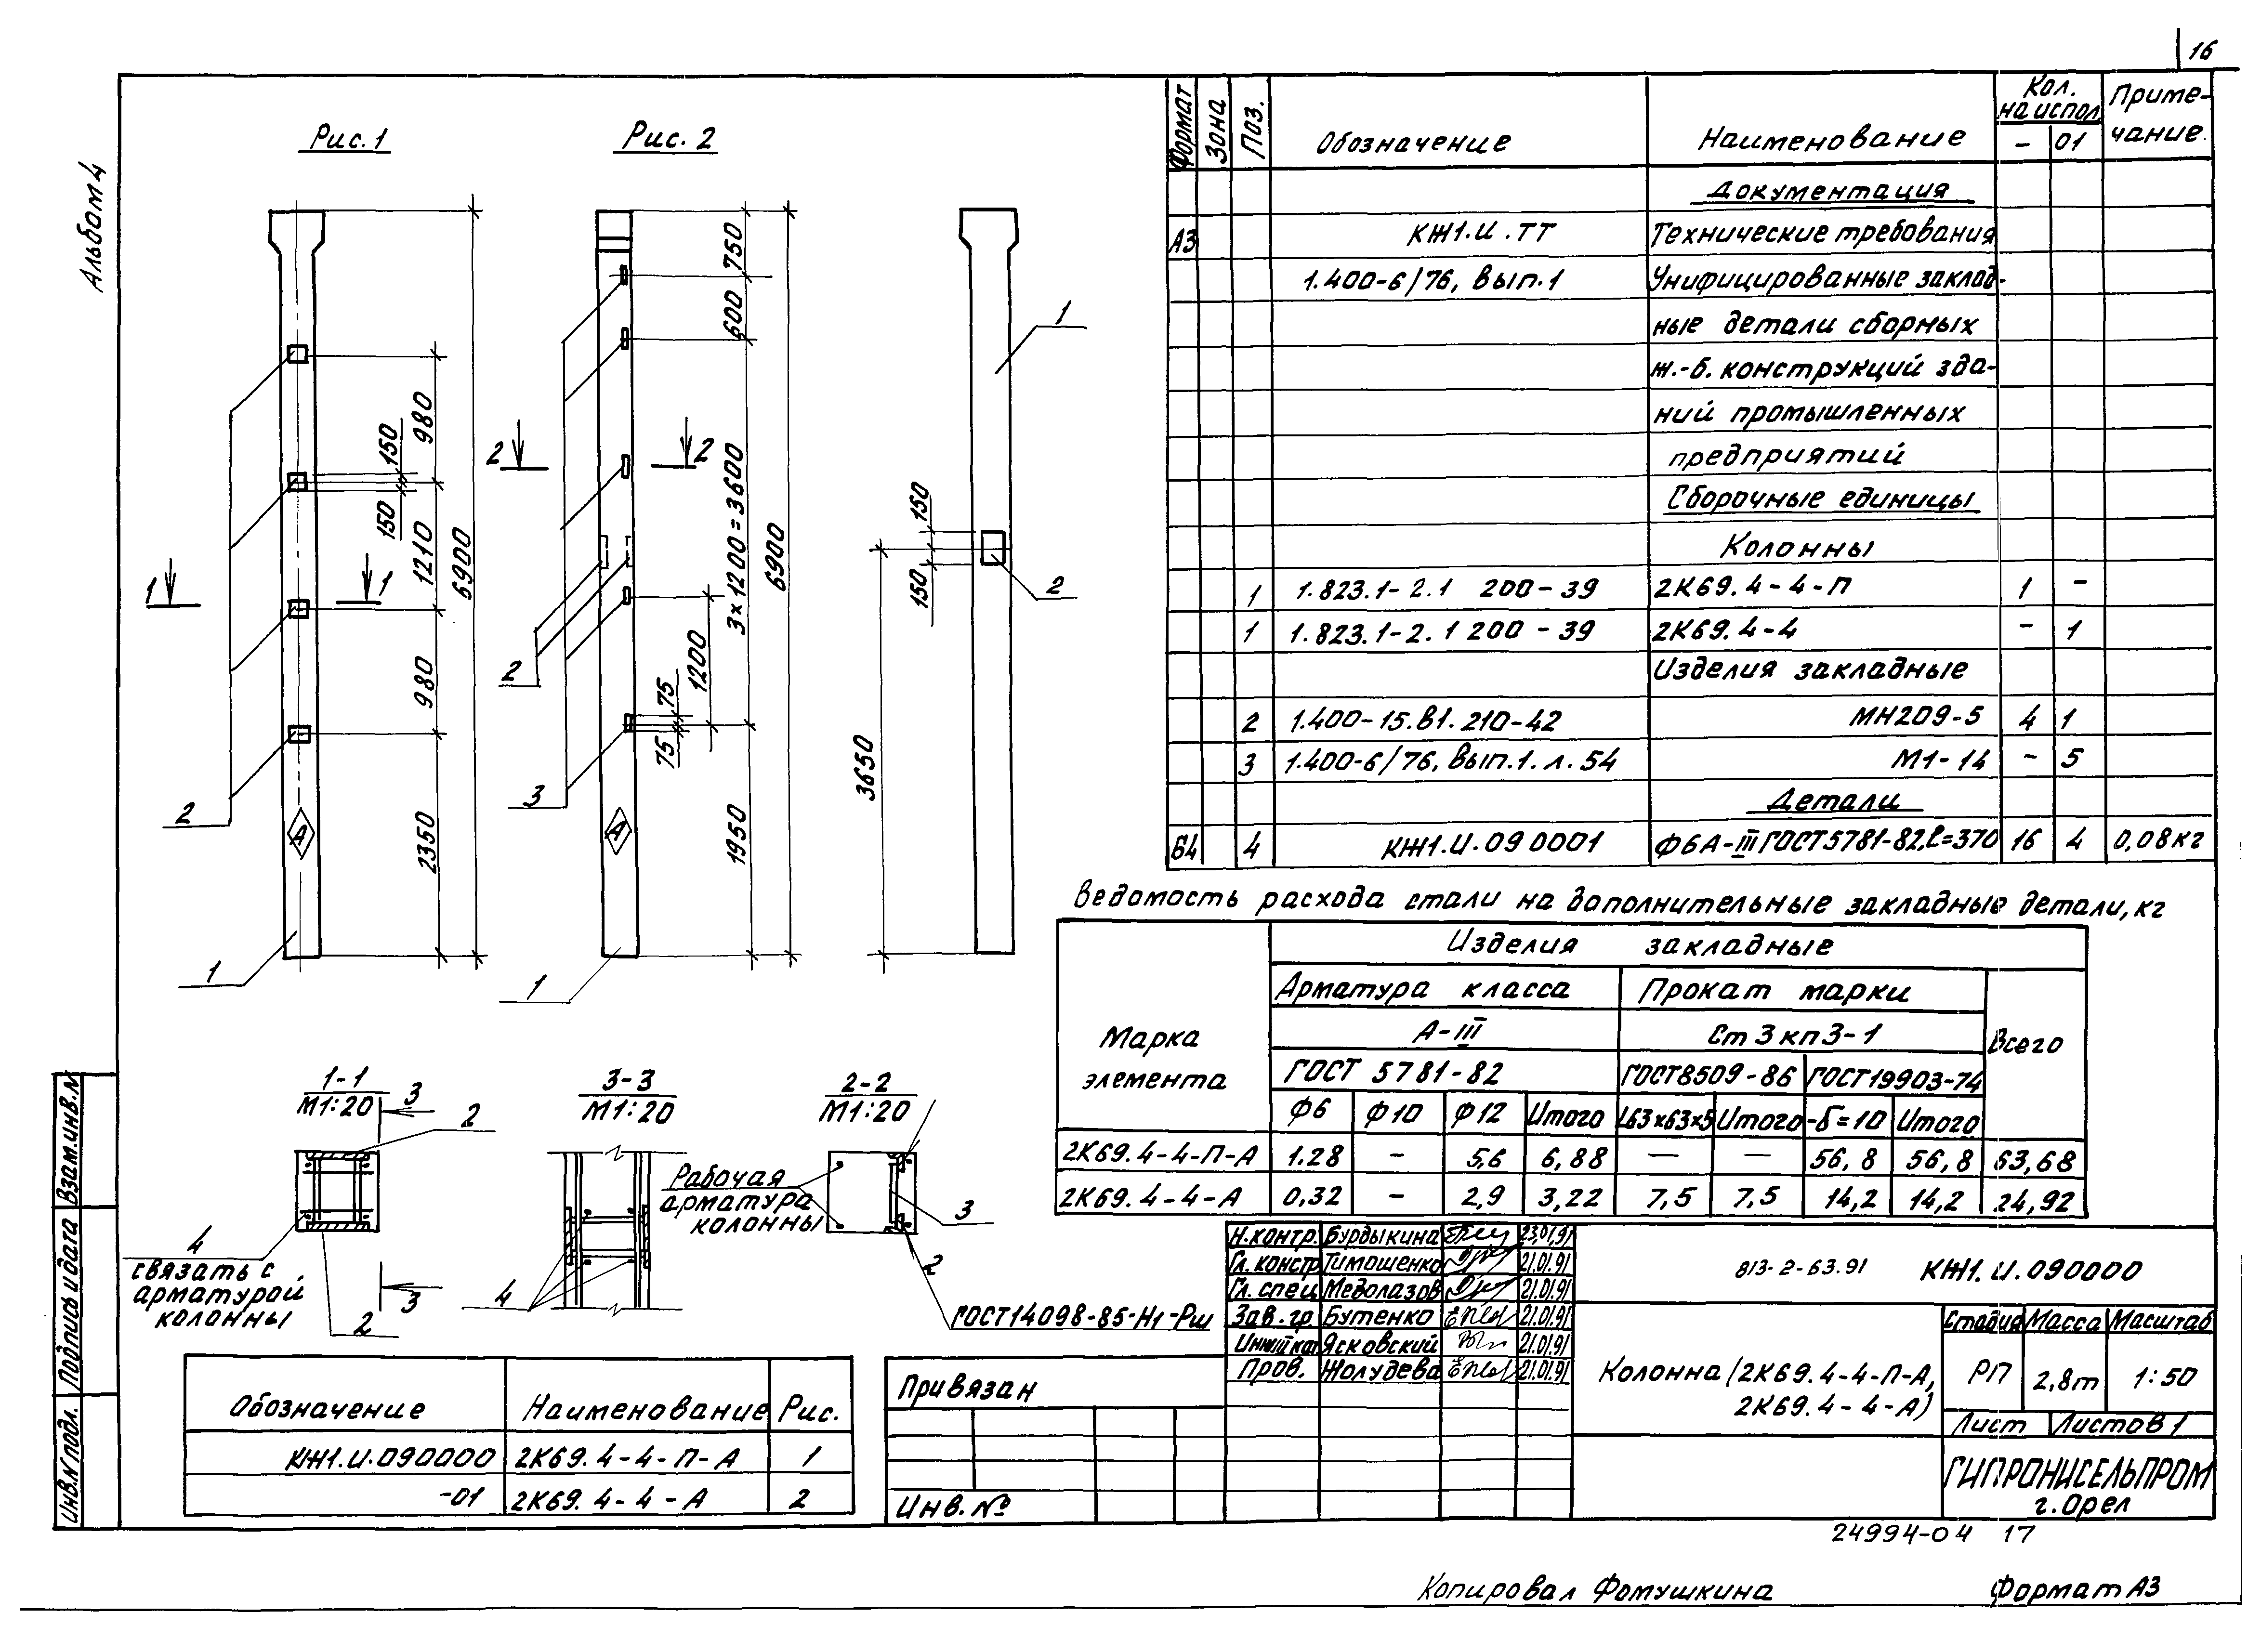 16
Альбом 4
Рис. 1
Рис. 2
980
150
150
1210
980
2350
6900
1
1
2
1
А
750
600
3×1200=3600
1200
75
75
1950
6900
2
2
2
3
1
А
1
2
150
150
3650
Формат
Зона
Поз.
Обозначение
Наименование
Кол. на испол.
-
01
Примечание
Документация
А3 КЖ1.И.ТТ Технические требования
1.400-6/76, вып.1 Унифицированные заклад-
ные детали сборных
ж.-б. конструкций зда-
ний промышленных
предприятий
Сборочные единицы
Колонны
1 1.823.1-2.1 200-39 2К69.4-4-П 1 -
1 1.823.1-2.1 200-39 2К69.4-4 - 1
Изделия закладные
2 1.400-15.В1.210-42 МН209-5 4 1
3 1.400-6/76, вып.1.л.54 М1-14 - 5
Детали
Б4 4 КЖ1.И.090001 Ф6А-III ГОСТ5781-82, ℓ=370 16 4 0,08кг
Ведомость расхода стали на дополнительные закладные детали, кг
Марка элемента
Изделия закладные
Арматура класса
Прокат марки
А-III
Ст3кп3-1
Всего
ГОСТ 5781-82
ГОСТ8509-86
ГОСТ19903-74
Ф6 Ф10 Ф12 Итого L63×63×5 Итого -δ=10 Итого
2К69.4-4-П-А 1.28 - 5,6 6,88 — — 56,8 56,8 63,68
2К69.4-4-А 0,32 - 2,9 3,22 7,5 7,5 14,2 14,2 24,92
1-1
М1:20
3
2
4
связать с
арматурой
колонны
2
3
3-3
М1:20
4
2-2
М1:20
Рабочая
арматура
колонны
3
2
ГОСТ14098-85-Н1-Рш
Обозначение Наименование Рис.
КЖ1.И.090000 2К69.4-4-П-А 1
-01 2К69.4-4-А 2
Привязан
Инв.№
Н.контр. Бурдыкина 23.01.91
Гл.констр. Тимошенко 21.01.91
Гл.спец. Медолазов 21.01.91
Зав.гр. Бутенко 21.01.91
Ясковский 21.01.91
Пров. Жолудева 21.01.91
813-2-63.91 КЖ1.И.090000
Колонна (2К69.4-4-П-А,
2К69.4-4-А)
Стадия Масса Масштаб
РП 2,8т 1:50
Лист Листов 1
ГИПРОНИСЕЛЬПРОМ
г.Орел
Взам.инв.№
Подпись и дата
Инв.№ подл.
24994-04 17
Копировал Фомушкина
Формат А3